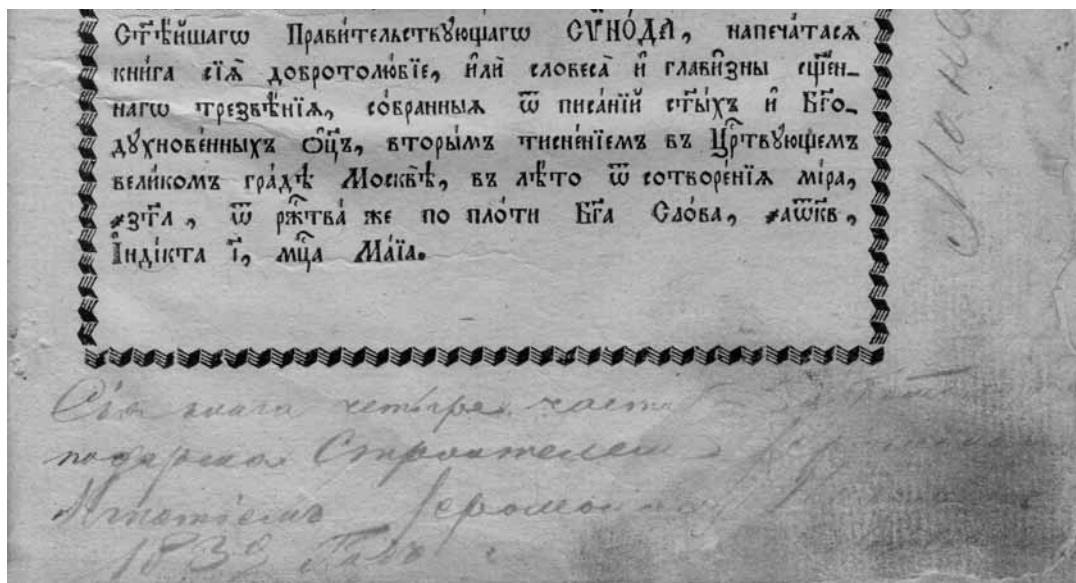 Ст҃ѣ́йшагѡ Прави́тельствꙋющагѡ СѴНО́ДА, напеча́тасѧ
кни́га сїѧ̀ добротолю́бїе, и҆лѝ словеса̀ и҆ глави̑зны сщ҃ен-
нагѡ трезвѣ́нїѧ, со́бранныѧ ѿ писа́нїй ст҃ы́хъ и҆ Бг҃о-
дꙋхнове́нныхъ ѻ҆ц҃ъ, вторы́мъ тисне́нїемъ въ Црⷭ҇твꙋ́ющемъ
вели́комъ гра́дѣ Москвѣ̀, въ лѣ́то ѿ сотворе́нїѧ мі́ра,
҂зт҃л, ѿ рж҃тва́ же по пло́ти Бг҃а Сло́ва, ҂аѿк҃в,
І҆нді́кта і҃, мц҃а Ма́їа.
Сія книга четыре
подарена Строителемъ
Игнатіемъ Іеромонаху
1832 Годъ